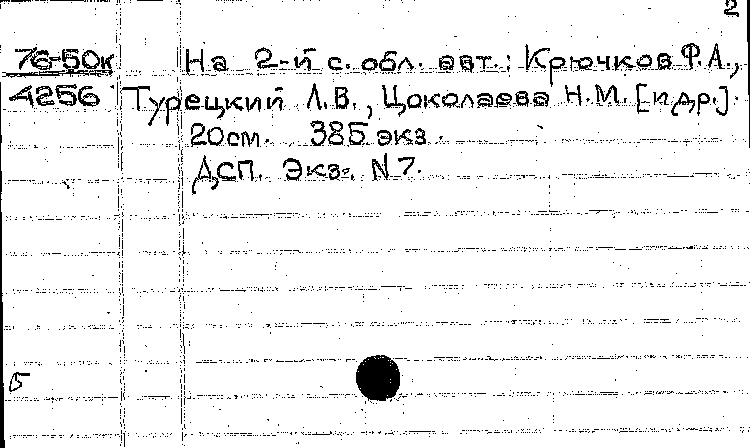 2
76-50к На 2-й с. обл. авт.: Крючков Ф.А.,
4256 Турецкий Л.В., Цоколаева Н.М. [и др.].
20 см. 385 экз.
ДСП. Экз. N 7.
Б